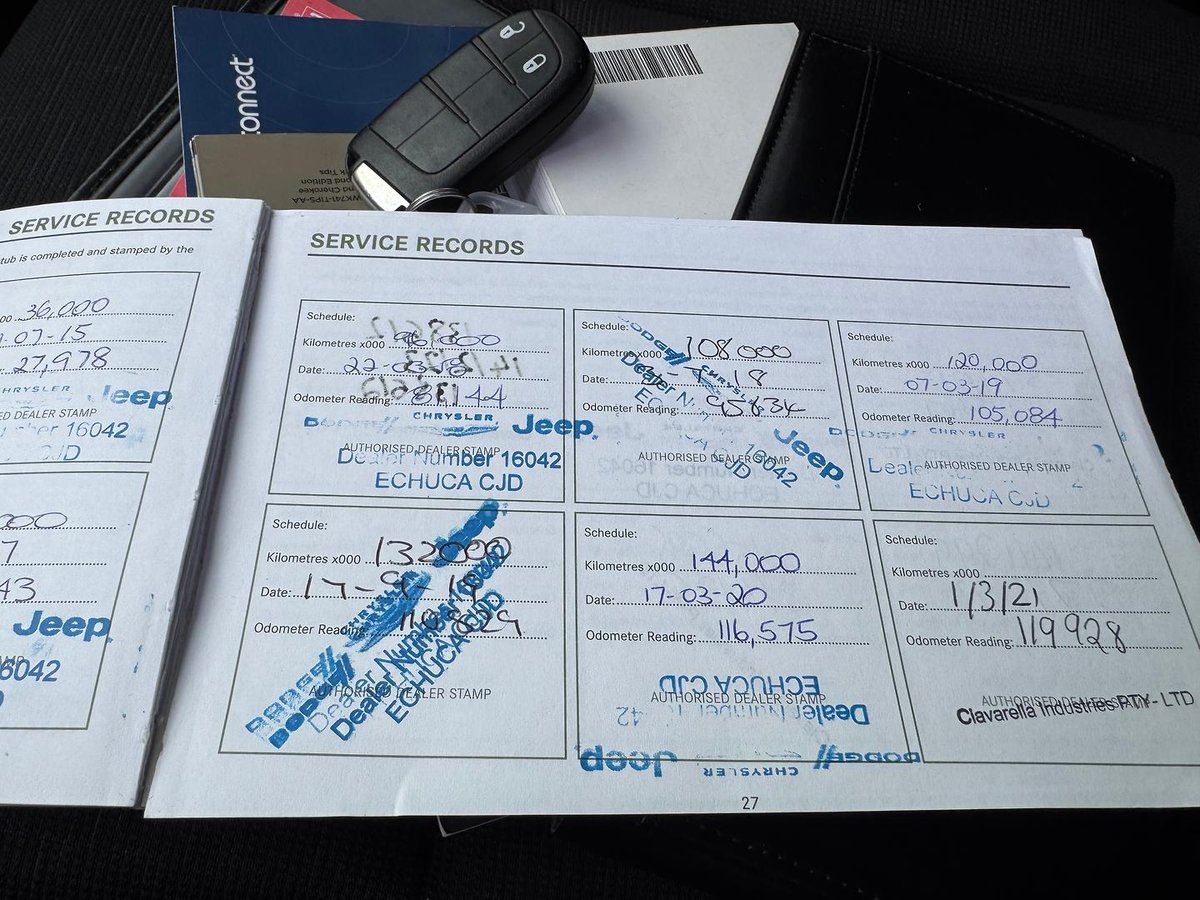 connect
WK741-TIPS-AA
SERVICE RECORDS
tub is completed and stamped by the
36,000
07-15
27,978
CHRYSLER
Jeep
ED DEALER STAMP
16042
CJD
7
43
Jeep
6042
SERVICE RECORDS
Schedule:
Kilometres x000
Date: 22-
Odometer Reading:
CHRYSLER Jeep
AUTHORISED DEALER STAMP
Dealer Number 16042
ECHUCA CJD
Schedule:
Kilometres x000 108000
Date: 18
Odometer Reading: 95834
DODGE
Dealer
Jeep
AUTHORISED DEALER STAMP
16042
CJD
Schedule:
Kilometres x000 120,000
Date: 07-03-19
Odometer Reading: 105,084
CHRYSLER
AUTHORISED DEALER STAMP
ECHUCA CJD
Schedule:
Kilometres x000 132000
Date: 17-9-19
Odometer Reading:
DODGE
Jeep
AUTHORISED DEALER STAMP
Dealer Number 16042
ECHUCA CJD
Schedule:
Kilometres x000 144,000
Date: 17-03-20
Odometer Reading: 116,575
ECHUCA CJD
AUTHORISED DEALER STAMP
Dealer Number 42
Jeep CHRYSLER DODGE
Schedule:
Kilometres x000
Date: 1/3/21
Odometer Reading: 119928
AUTHORISED DEALER STAMP
Clavarella Industries PTY-LTD
27